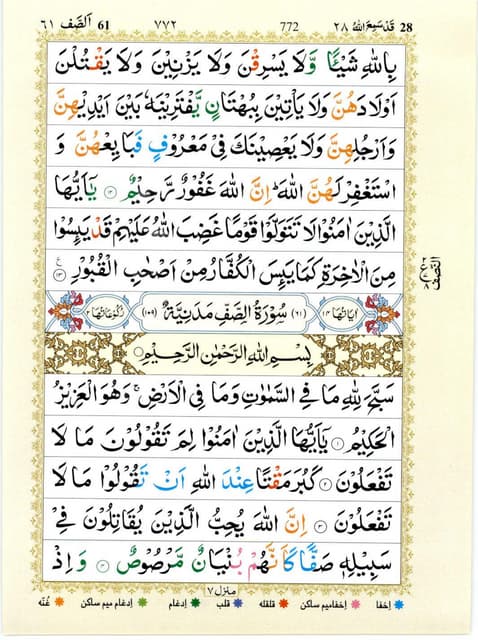 28 قَدۡ سَمِعَ اللّٰهُ ٢٨ 772 ٧٧٢ 61 اَلصَّفّ ٦١
بِاللّٰهِ شَيۡـًٔا وَّلَا يَسۡرِقۡنَ وَلَا يَزۡنِيۡنَ وَلَا يَقۡتُلۡنَ
اَوۡلَادَهُنَّ وَلَا يَاۡتِيۡنَ بِبُهۡتَانٍ يَّفۡتَرِيۡنَهٗ بَيۡنَ اَيۡدِيۡهِنَّ
وَاَرۡجُلِهِنَّ وَلَا يَعۡصِيۡنَكَ فِىۡ مَعۡرُوۡفٍ فَبَايِعۡهُنَّ وَ
اسۡتَغۡفِرۡ لَهُنَّ اللّٰهَ ؕ اِنَّ اللّٰهَ غَفُوۡرٌ رَّحِيۡمٌ ۝۱۲ يٰۤاَيُّهَا
الَّذِيۡنَ اٰمَنُوۡا لَا تَتَوَلَّوۡا قَوۡمًا غَضِبَ اللّٰهُ عَلَيۡهِمۡ قَدۡ يَٮِٕسُوۡا
مِنَ الۡاٰخِرَةِ كَمَا يَٮِٕسَ الۡكُفَّارُ مِنۡ اَصۡحٰبِ الۡقُبُوۡرِ ۝۱۳
اٰيَاتُهَا ١٤ (٦١) سُوۡرَةُ الصَّفِّ مَدَنِيَّةٌ (١٠٩) رُكُوۡعَاتُهَا ٢
بِسۡمِ اللّٰهِ الرَّحۡمٰنِ الرَّحِيۡمِ
سَبَّحَ لِلّٰهِ مَا فِى السَّمٰوٰتِ وَمَا فِى الۡاَرۡضِ ۚ وَهُوَ الۡعَزِيۡزُ
الۡحَكِيۡمُ ۝۱ يٰۤاَيُّهَا الَّذِيۡنَ اٰمَنُوۡا لِمَ تَقُوۡلُوۡنَ مَا لَا
تَفۡعَلُوۡنَ ۝۲ كَبُرَ مَقۡتًا عِنۡدَ اللّٰهِ اَنۡ تَقُوۡلُوۡا مَا لَا
تَفۡعَلُوۡنَ ۝۳ اِنَّ اللّٰهَ يُحِبُّ الَّذِيۡنَ يُقَاتِلُوۡنَ فِىۡ
سَبِيۡلِهٖ صَفًّا كَاَنَّهُمۡ بُنۡيَانٌ مَّرۡصُوۡصٌ ۝۴ وَاِذۡ
منزل ٧
اِخفا اِخفامیم ساکن قلقله قلب اِدغام اِدغام میم ساکن غُنّه